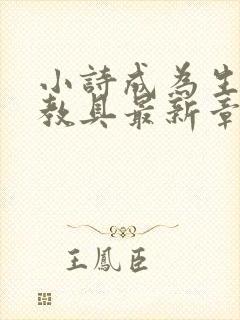 小詩成為生
教具最新章
王鳳臣